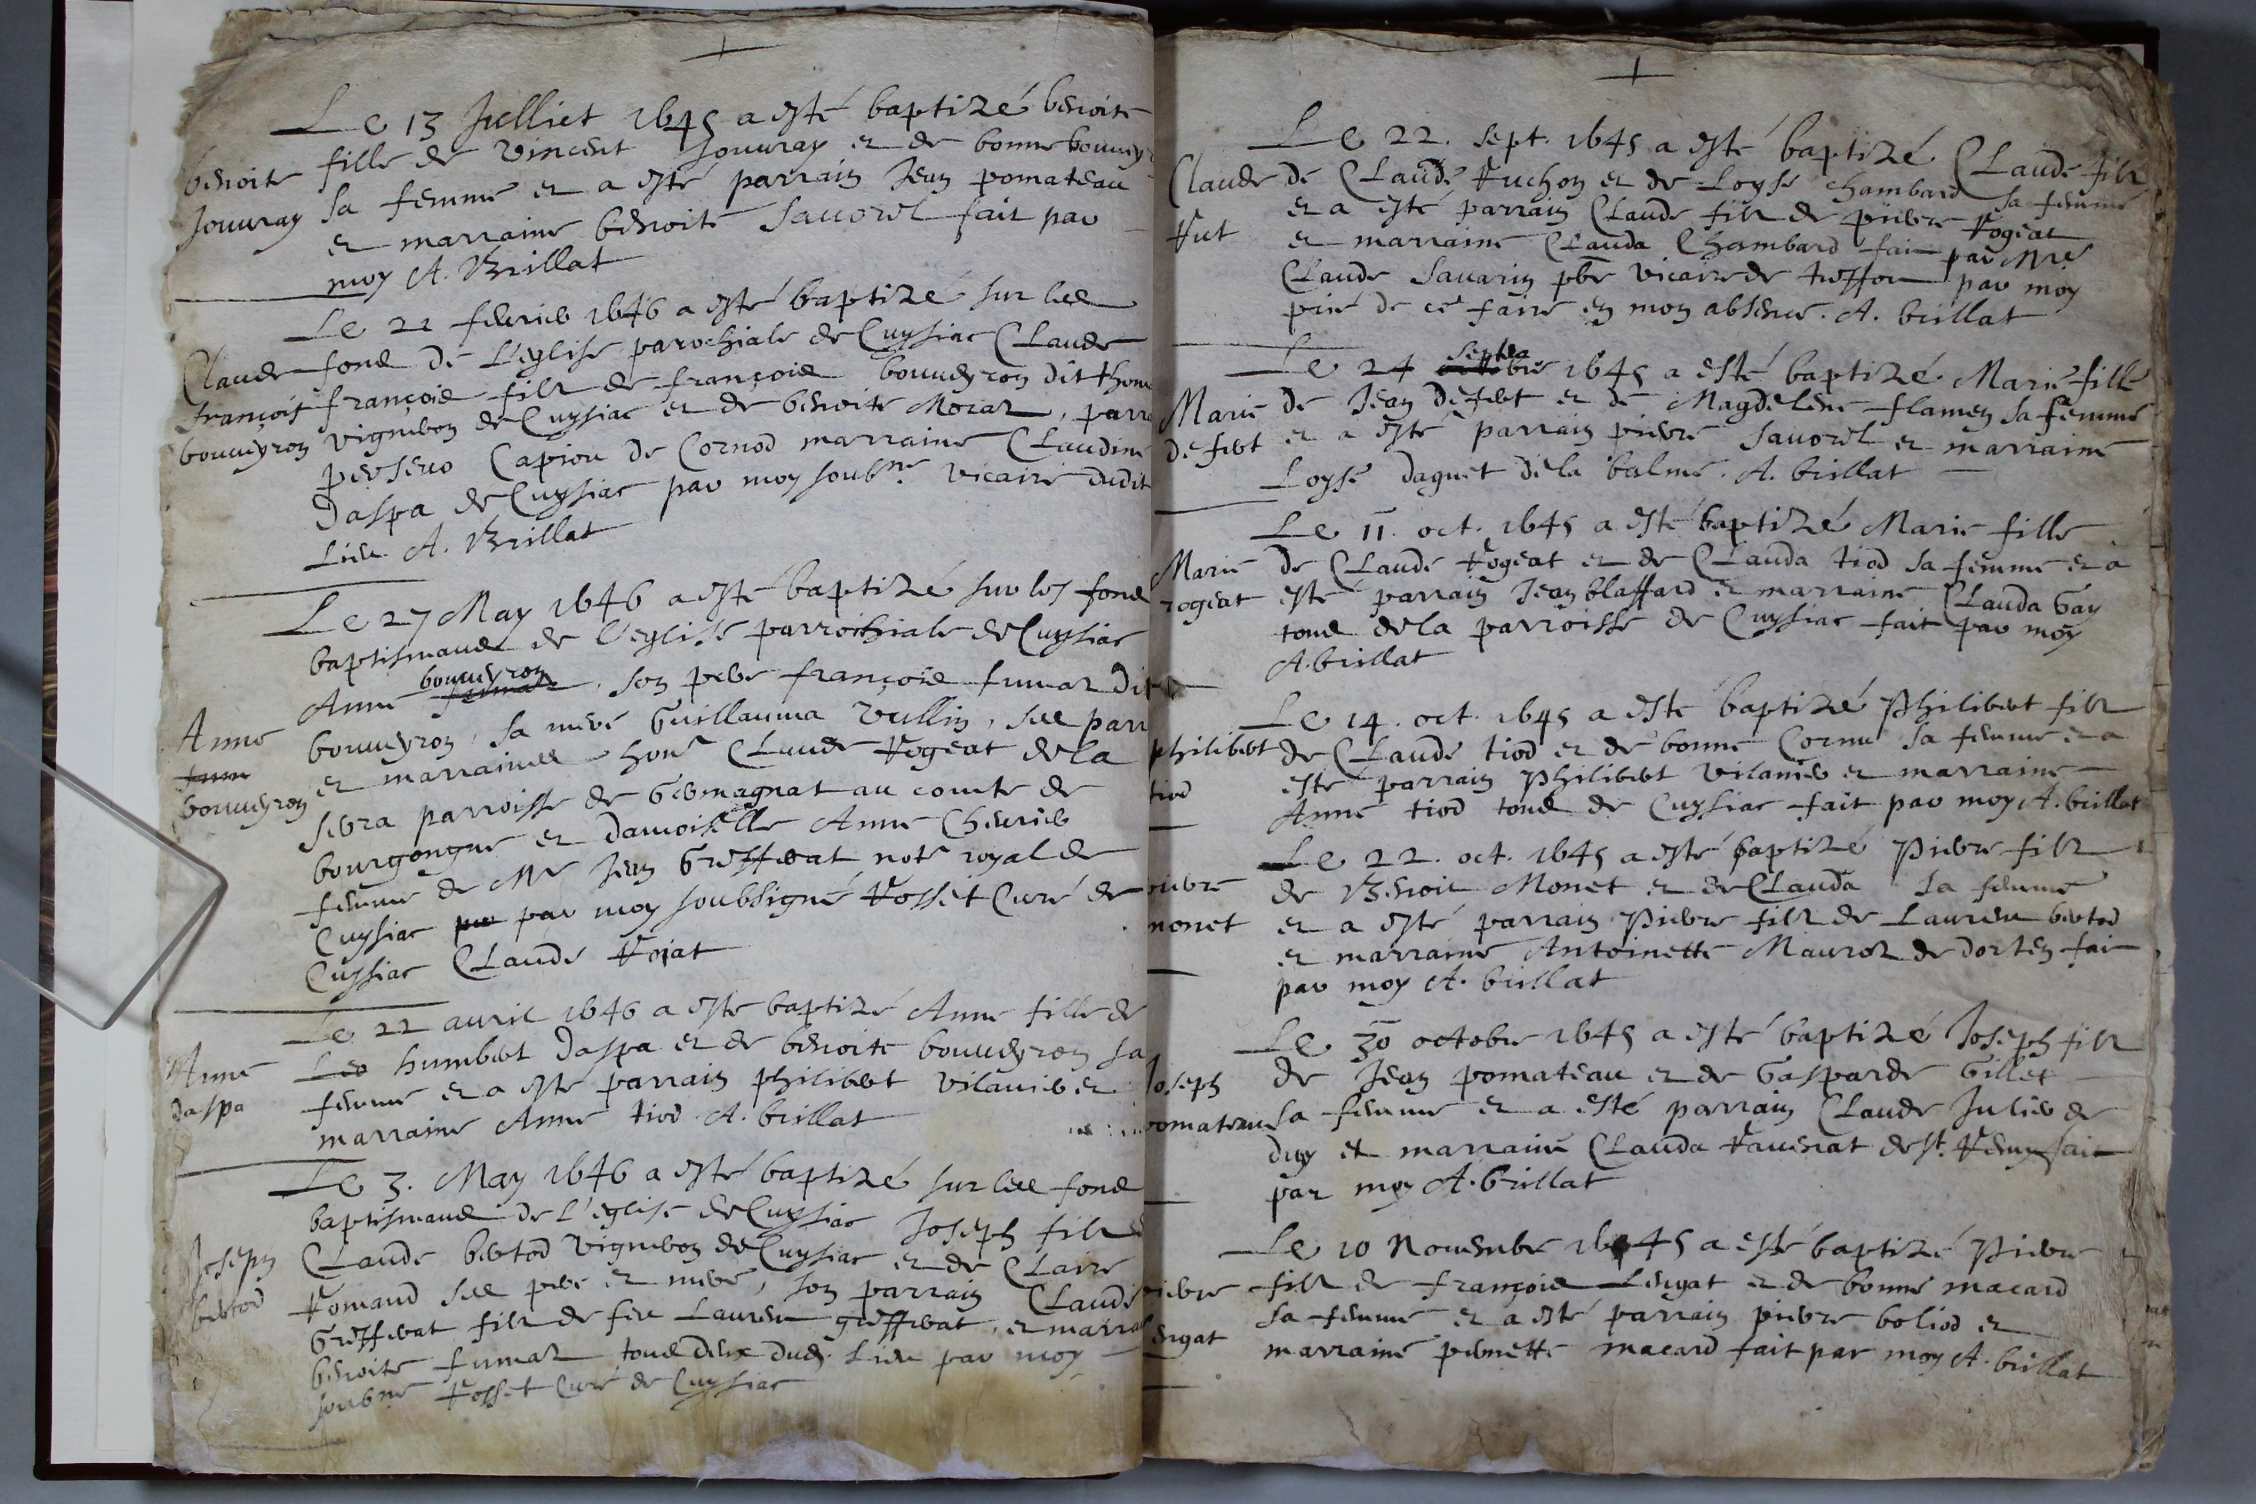 Le 13 Juelliet 1645 a esté baptizé benoite
benoite fille de vincent Jouuray et de bonne bouuey
Jouuray sa femme et a esté parrain Jean pomateau
et marraine benoite Sauorel fait par
moy A. Brillat
Le 22 feburier 1646 a esté baptizé sur les
Claude fons de L'eglise parochiale de Cuysiac Claude
françois françois filz de françois bouueyron dit thom
bouueyron vigneron de Cuysiac et de benoite Moraz, parr
Capiou de Cornod marraine Claudine
Daspa de Cuysiac par moy soubne. vicaire dudit
Lieu. A. Brillat
Le 27 May 1646 a esté baptizé sur les fons
baptismaus de l'eglise parrochiale de Cuysiac
Anne bouueyron, son pere françois fumaz Dit
Anne bouueyron, sa mere Guillauma Vullin, ses parr
et marraines hone. Claude Rogeat de la
bouueyron serra parroisse de Germagnat au comte de
bourgongne et damoiselle Anne Cheurier
femme de Mre Jean Grefferat notre royal de
Cuysiac par moy soubsigné Rosset Curé de
Cuysiac Claude Rojat
Le 22 auril 1646 a esté baptizé Anne fille de
Anne humbert Daspa et de benoite bouueyron sa
daspa femme et a esté parrain philibert vilanier et
marraine Anne tiod. A. brillat
Le 3. May 1646 a esté baptizé sur les fons
baptismaus de L'eglise de Cuysiac Joseph filz
Joseph Claude bertod vigneron de Cuysiac et de Claire
bertod Romand ses pere et mere, son parrain Claude
Grefferat filz de feu Laurens grefferat, et marra
benoite fumaz tous deux dud. Lieu par moy
soubne Rosset Curé de Cuysiac
Le 22. sept. 1645 a esté baptizé Claude filz
Claude de Claude Ruchon et de Loyse Chambard sa femme
Rut et a esté parrain Claude filz de pierre Rogeat
et marraine Clauda Chambard fait par Mre
Claude Sauarin pbre vicaire de treffort par moy
prié de ce faire en mon absence. A. brillat
Le 24 septembre 1645 a esté baptizé Marie fille
Marie de Jean defert et de Magdelene flamen sa femme
defert et a esté parrain pierre Sauorel et marraine
Loyse daguet de la balme. A. brillat
Le 11. oct. 1645 a esté baptizé Marie fille
Marie de Claude Rogeat et de Clauda tiod sa femme et a
rogeat esté parrain Jean blaffard et marraine Clauda Gay
tous de la parroisse de Cuysiac fait par moy
A. brillat
Le 14. oct. 1645 a esté baptizé Philibert filz
philibert de Claude tiod et de bonne Cornu sa femme et a
tiod esté parrain Philibert vilanier et marraine
Anne tiod tous de Cuysiac fait par moy A. brillat
Le 22. oct. 1645 a esté baptizé Pierre filz
pierre de Benoit Monet et de Clauda sa femme
monet et a esté parrain Pierre filz de Laurens bertod
et marraine Antoinette Mauroz de dorten fait
par moy A. brillat
Le 30 octobre 1645 a esté baptizé Joseph filz
Joseph de Jean pomateau et de Gasparde Gillet
pomateau sa femme et a esté parrain Claude Julier de
duy et marraine Clauda Rauenat de St. Remy fait
par moy A. brillat
Le 10 Nouembre 1645 a esté baptizé Pierre
pierre filz de françois Leugat et de bonne macard
Leugat sa femme et a esté parrain pierre boliod et
marraine pernette macard fait par moy A. brillat